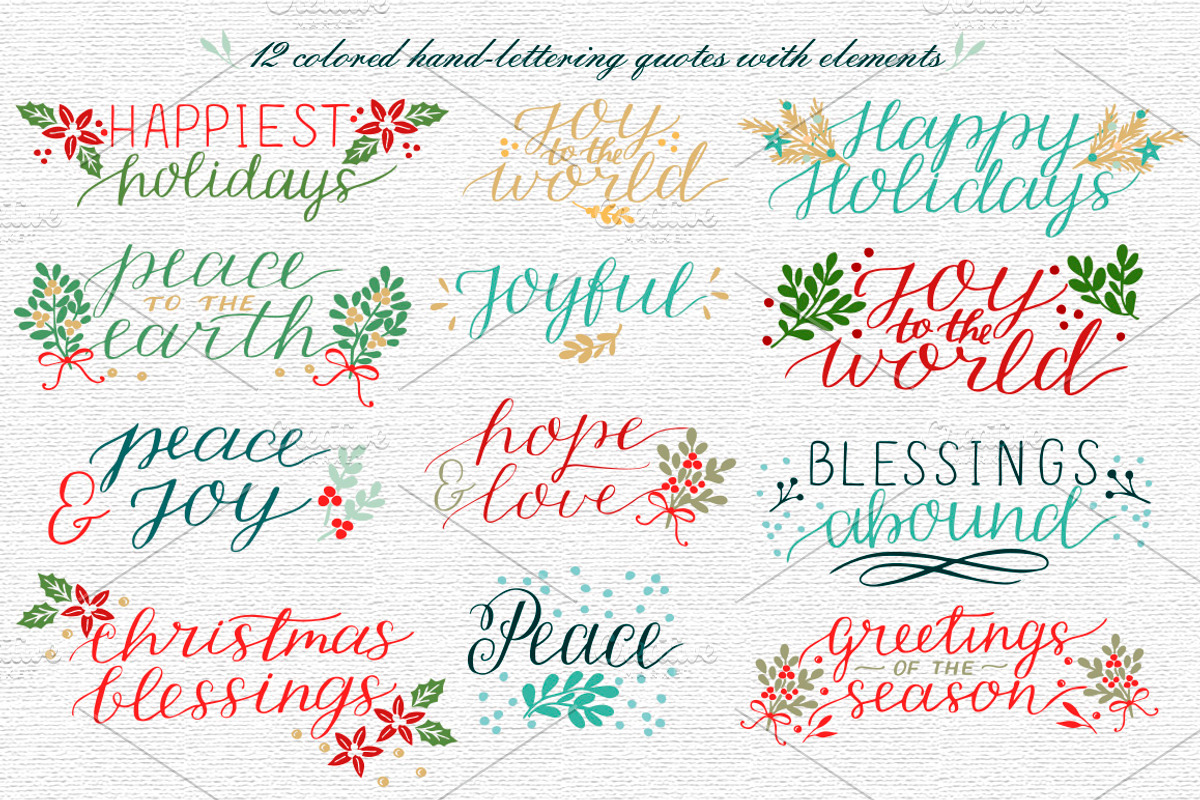 12 colored hand-lettering quotes with elements
HAPPIEST
holidays
Joy
to the
world
Happy
Holidays
peace
TO THE
earth
Joyful
Joy
to the
world
peace
& Joy
hope
& love
BLESSINGS
abound
christmas
blessings
Peace
greetings
OF THE
season